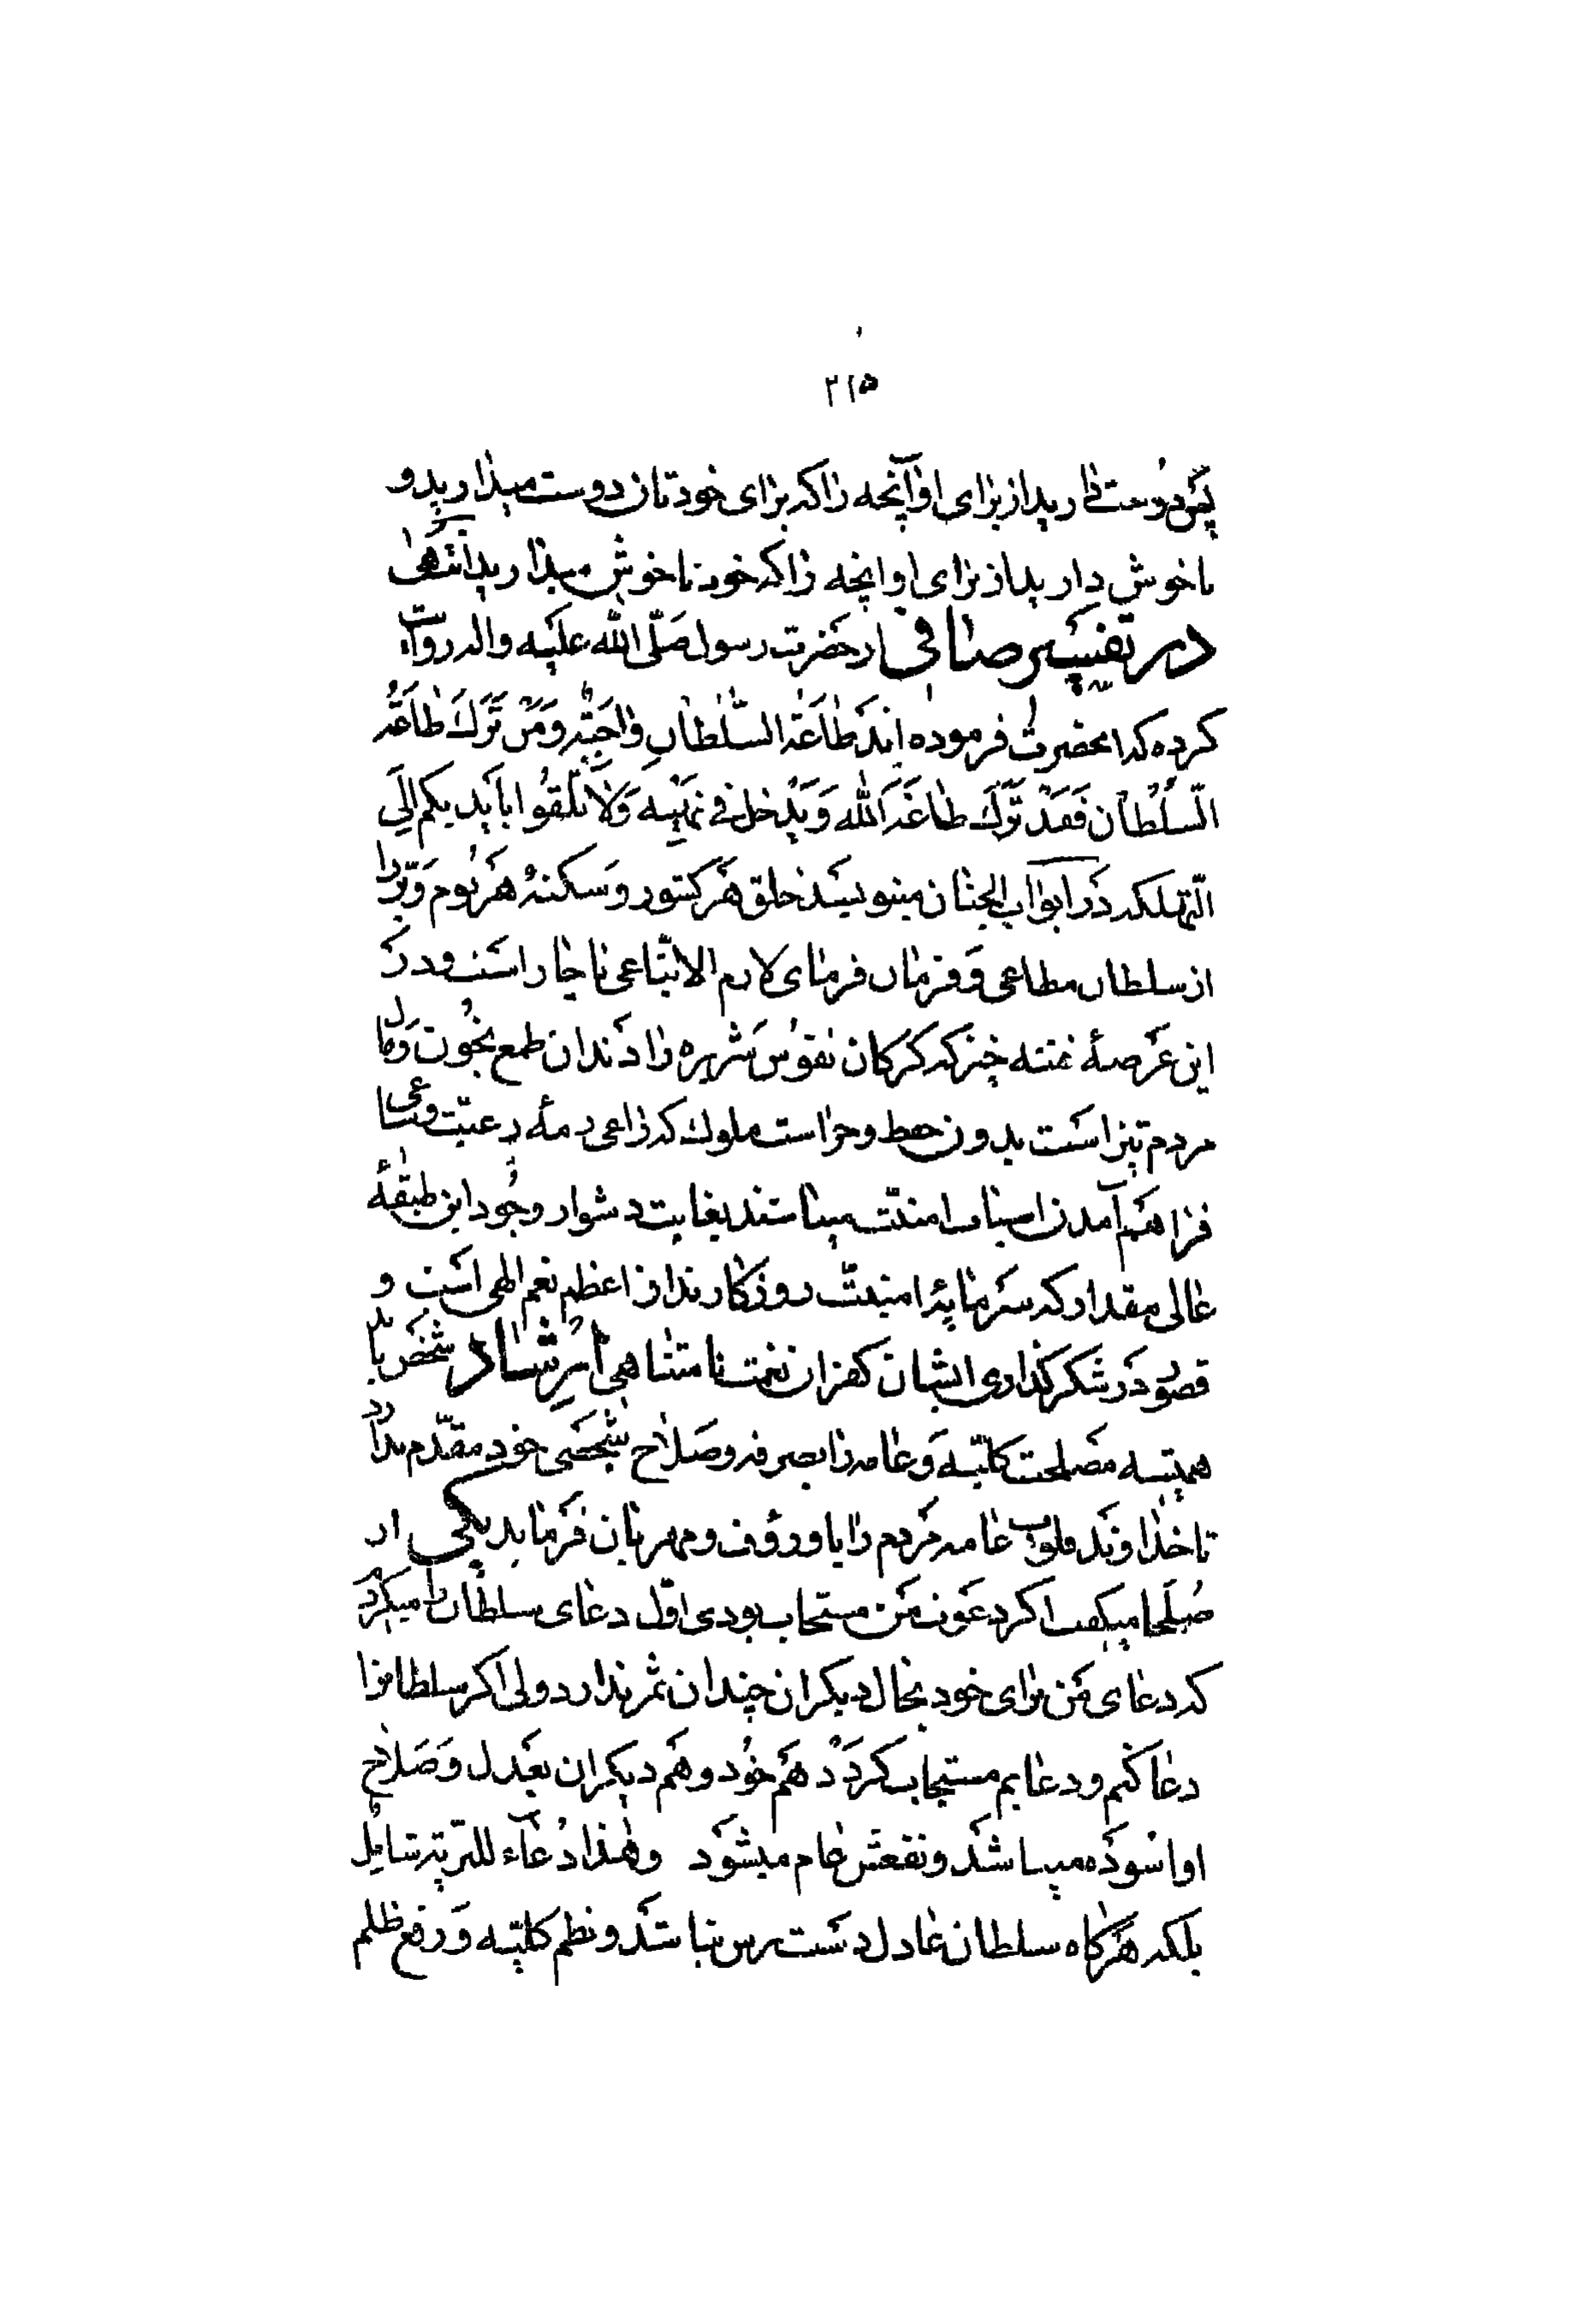 ۲۱۵
پس دوست دارید از برای او آنچه را که برای خودتان دوست میدارید و
ناخوش دارید از برای او آنچه را که خود ناخوش میدارید انتهی
در تفسیر صافی از حضرت رسول صَلّی الله علیه واله روایت
کرده که انحضرت فرموده اند طاعَةُ السُّلْطانِ واجِبَةٌ وَمَنْ تَرَكَ طاعَةَ
السُّلْطانِ فَقَدْ تَرَكَ طاعَةَ الله وَ یَدْخل فی نَهْیِهِ وَلا تُلْقُوا بِاَیْدیکم اِلَی
التهلکه در ابواب الجنان مینویسد خلق هر کشور و سکنهٔ هر بوم و بر را
از سلطان مطاعی و فرمان فرمای لازم الاتباعی ناچار است و در
این عرصهٔ فتنه خیز که گرگان نفوس شریره را دندان طمع بخون و مال
مردم تیز است بدون حفظ و حراست ملوک که راعی رمهٔ رعیت و ساعی
فراهم آمدن اسباب امنیت میباشند بغایت دشوار وجود این طبقهٔ
عالی مقدار که سرمایهٔ امنیت روزگارند از اعظم نعم الهی است و
قصور در شکر گذاری ایشان کفران نعمت نامتناهی ارشاد شخص باید
همیشه مصلحت کلیه و عامه را بصرفه و صلاح شخصی خود مقدم بدارد
تا خداوند قلوب عامه مردم را با و رؤف و مهربان فرماید یکی از
صلحا میگفت اگر دعوت من مستجاب بودی اول دعای سلطان را میکرد
که دعای من برای خود بحال دیگران چندان ثمر ندارد ولی اگر سلطانرا
دعا کنم و دعایم مستجاب گردد هم خود و هم دیگران بعدل و صلاح
او آسوده میباشد و نفعش عام میشود وهٰذا دُعآء للبریة شامل
بلکه هرگاه سلطان عادل دست رس نباشد و نظم کلیه و رفع ظلم